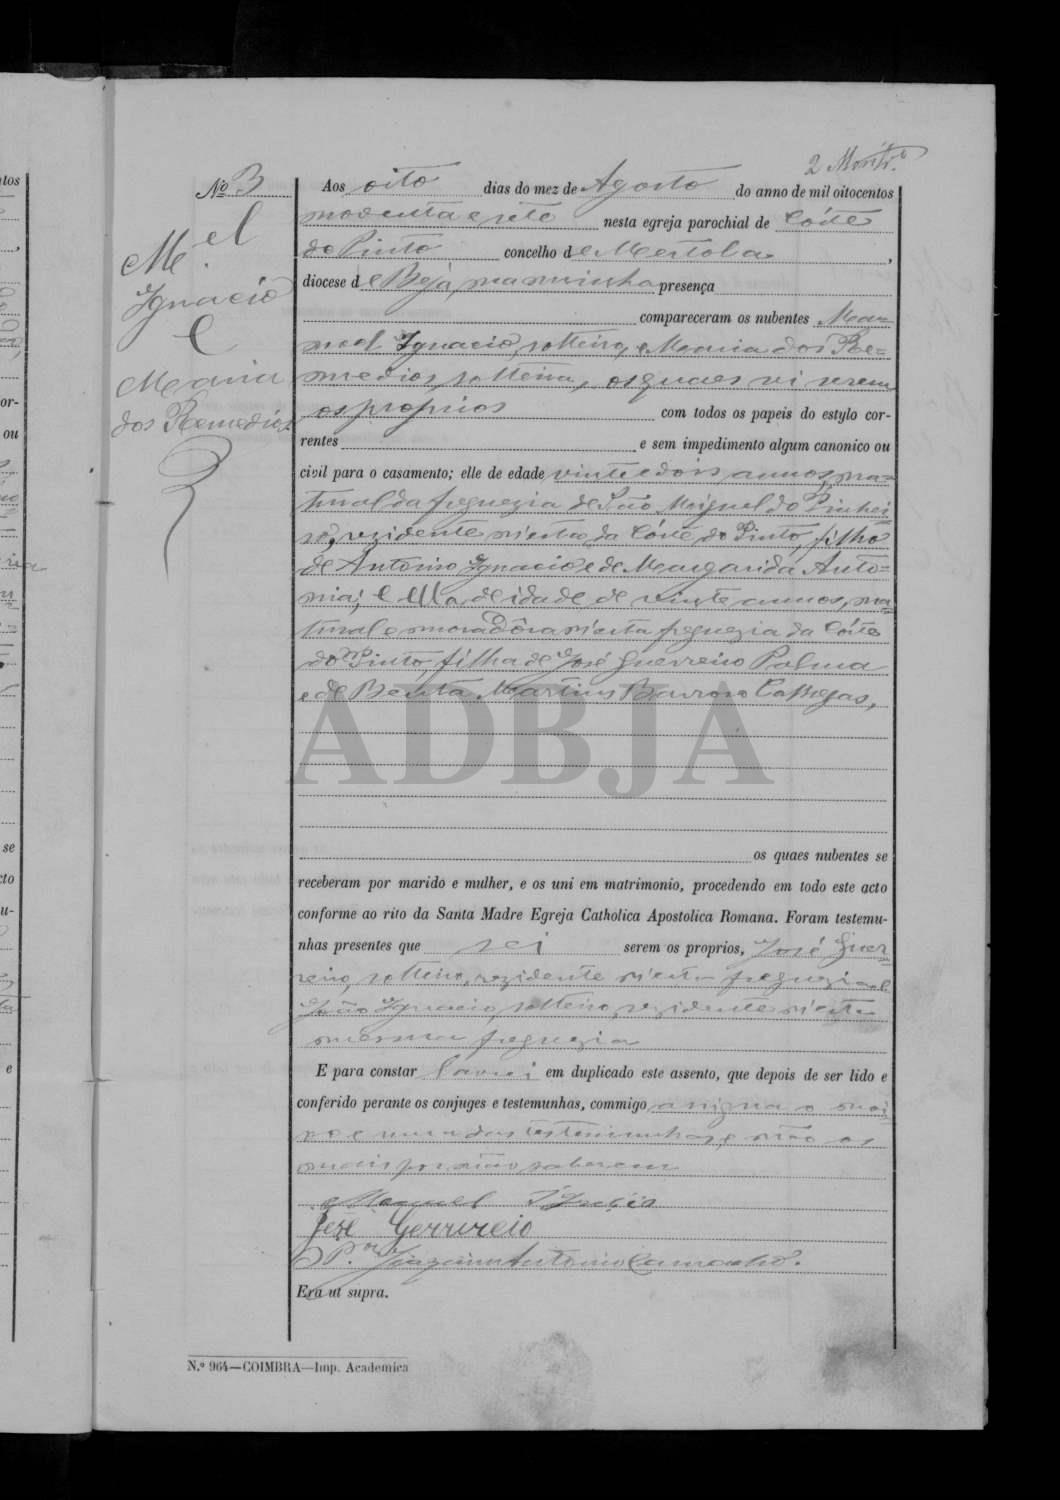 2
Nº 3 Aos oito dias do mez de Agosto do anno de mil oitocentos
noventa e sete nesta egreja parochial de Côrte
do Pinto concelho de Mertola,
diocese de Beja, na minha presença
compareceram os nubentes Ma=
noel Ignacio, solteiro, e Maria dos Re=
medios, solteira, os quaes vi serem
os proprios com todos os papeis do estylo cor-
rentes e sem impedimento algum canonico ou
civil para o casamento; elle de edade vinte e dois annos, na=
tural da freguezia de São Miguel do Pinhei
ro, rezidente n'esta da Côrte do Pinto, filho
de Antonio Ignacio e de Margarida Anto=
nia; e ella de idade de vinte annos, na=
tural e moradôra n'esta freguezia da Côrte
do Pinto, filha de José Guerreiro Palma
e de Benta Martins Barroso
os quaes nubentes se
receberam por marido e mulher, e os uni em matrimonio, procedendo em todo este acto
conforme ao rito da Santa Madre Egreja Catholica Apostolica Romana. Foram testemu-
nhas presentes que sei serem os proprios, José Guer=
reiro, solteiro, rezidente n'esta freguezia e
João Ignacio, solteiro, rezidente n'esta
mesma freguezia
E para constar lavrei em duplicado este assento, que depois de ser lido e
conferido perante os conjuges e testemunhas, commigo assigna o noi
vo e uma das testemunhas, e não os
mais por não saberem
Manuel
José Gerrureio
O P.or Joaquim Antonio Camacho.
Era ut supra.
M.el
Ignacio
e
Maria
dos Remedios
N.º 964—COIMBRA—Imp. Academica
ADBJA
tos
or-
ou
se
cto
u-
e